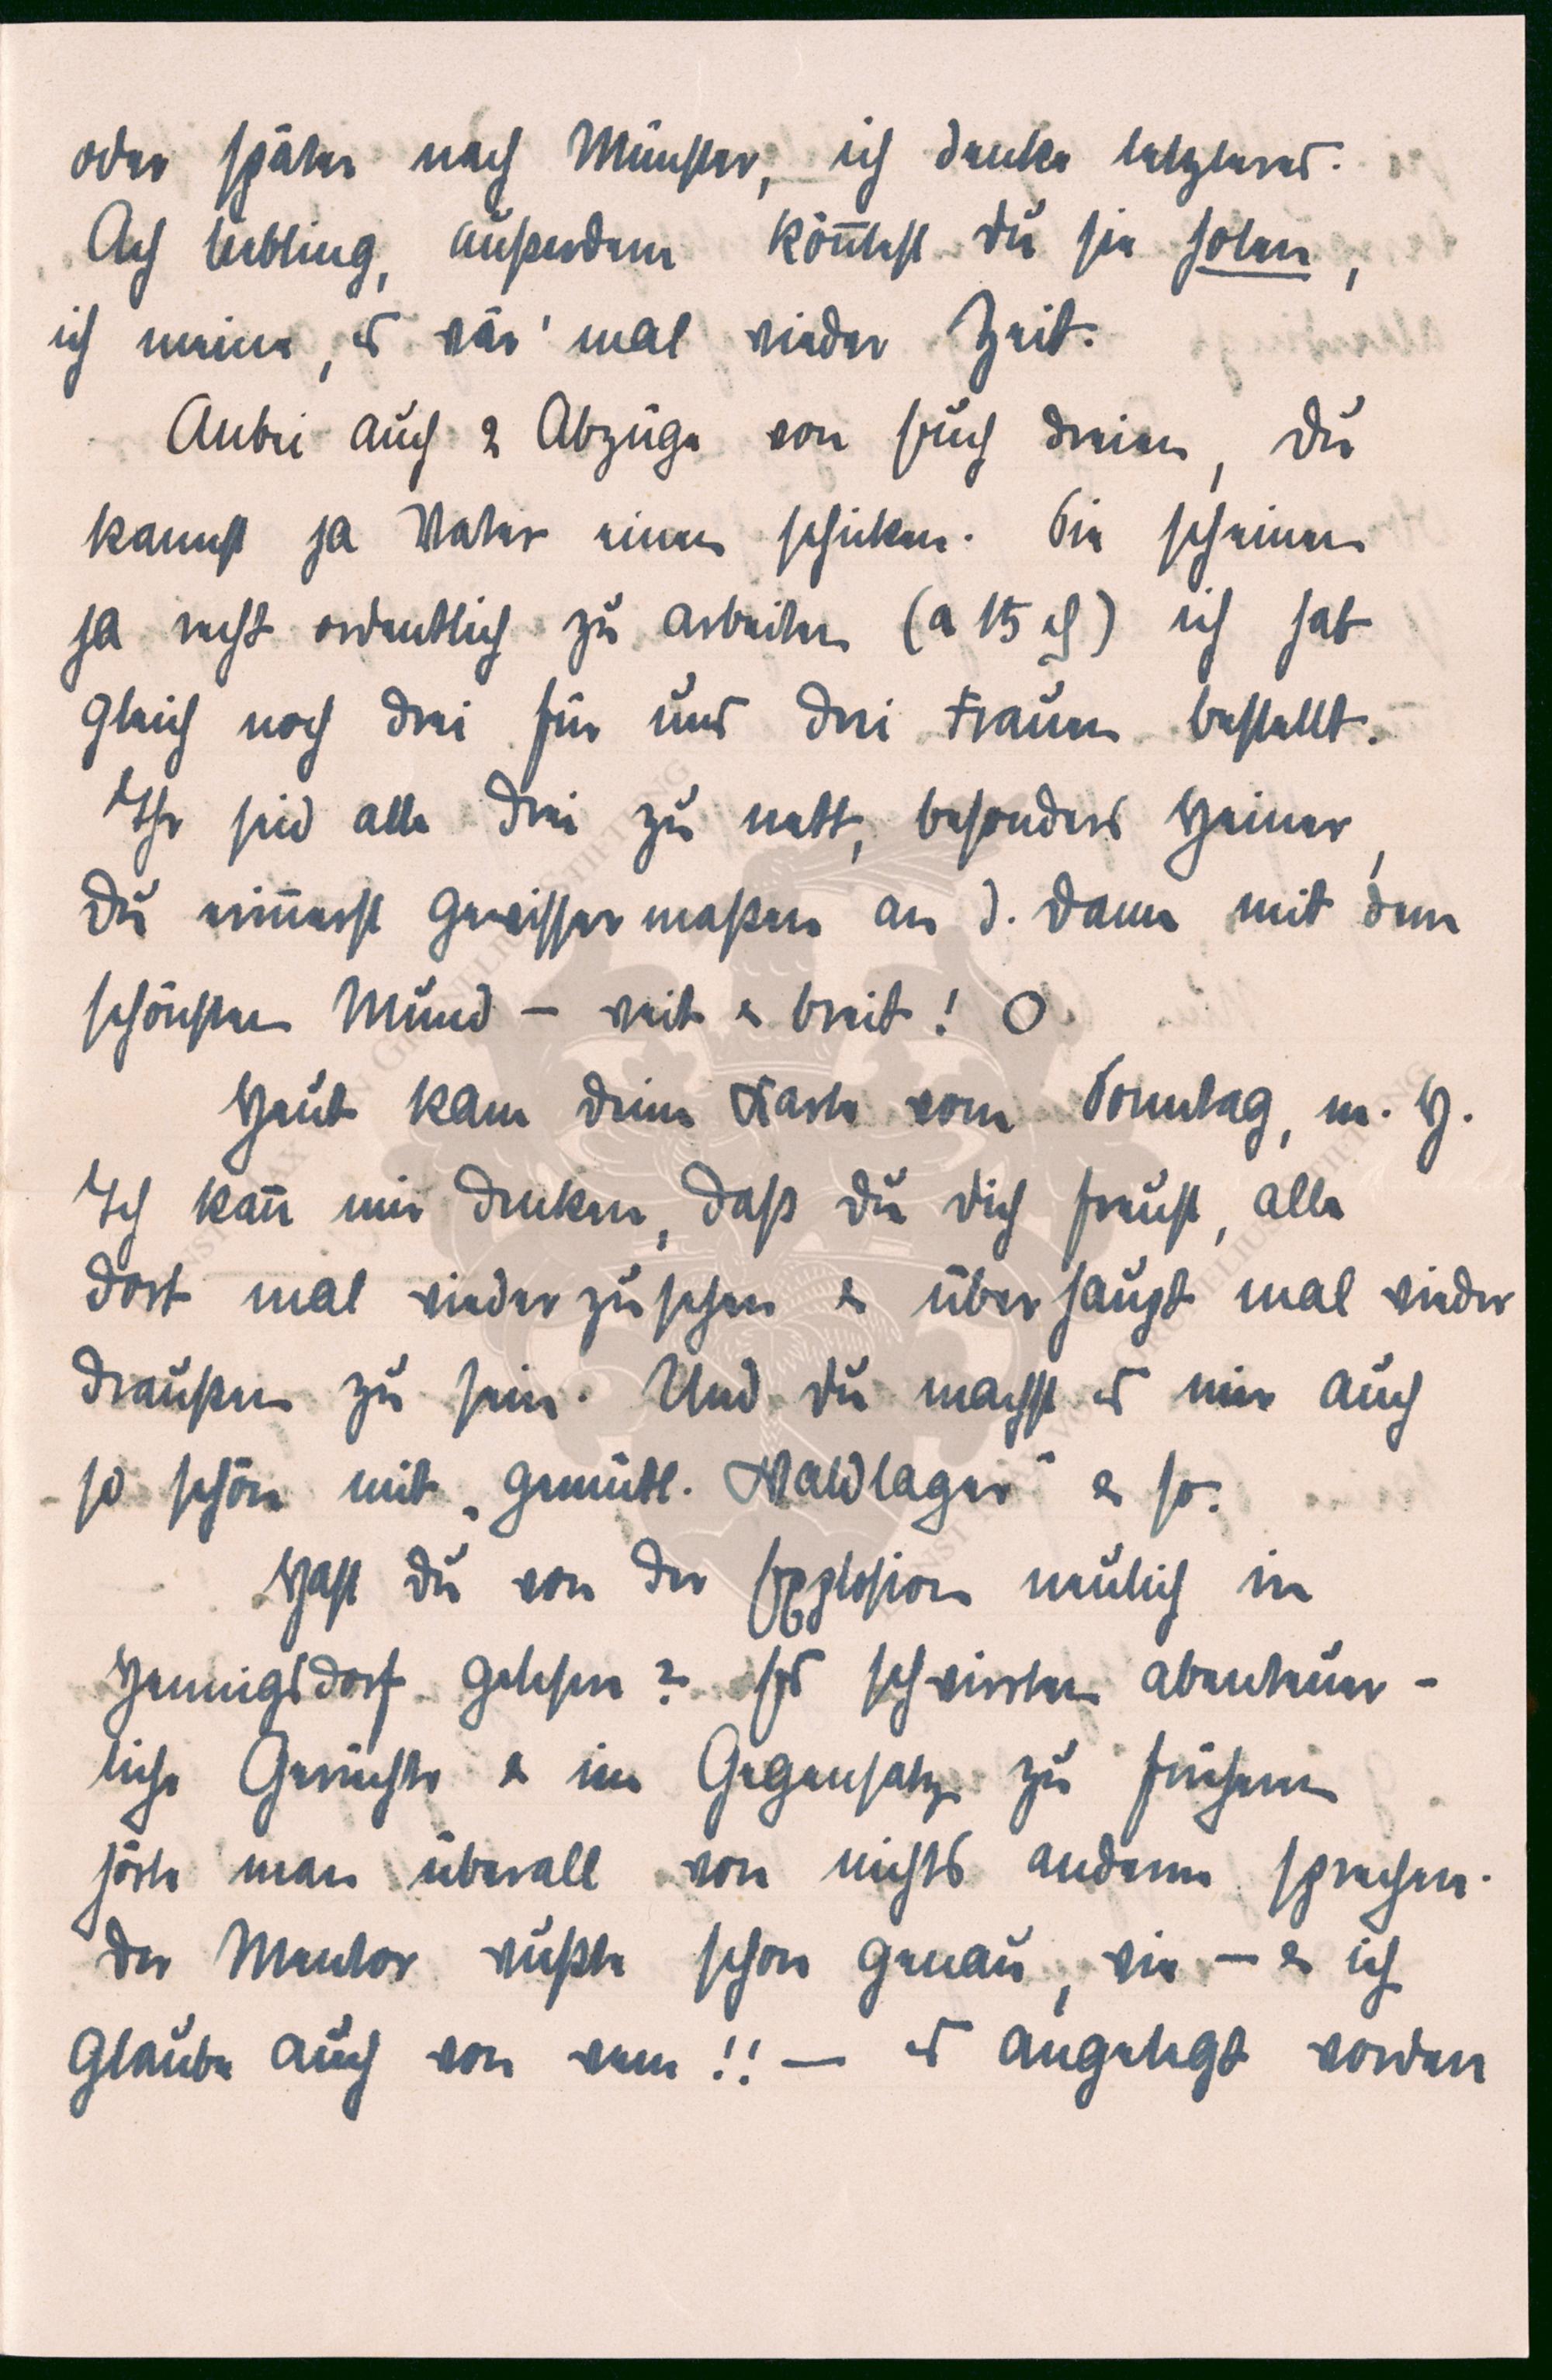 oder später nach Münster, ich denke letzteres.
Ach Liebling, außerdem kön̄test du sie holen,
ich meine, es wär' mal wieder Zeit.
Anbei auch 2 Abzüge von Euch dreien, du
kannst ja Vater einen schicken. Sie scheinen
ja recht ordentlich zu arbeiten (a 15 ₰) ich hab
gleich noch drei für uns drei Frauen bestellt.
Ihr seid alle drei zu nett, besonders Heiner,
du erin̄erst gewissermaßen an d. Dame mit dem
schönsten Mund – weit & breit! O
Heut kam deine Karte vom Sonntag, m. H.
Ich kan̄ mir denken, daß du dich freust, alle
dort mal wiederzusehen & überhaupt mal wieder
draußen zu sein. Und du machst es mir auch
so schön mit „gemütl. Waldlager" & so.
Hast du von der Explosion neulich in
Hennigsdorf gelesen? Es schwirrten abenteuer-
liche Gerüchte & im Gegensatz zu früherem
hörte man überall von nichts anderem sprechen.
Der Mentor wußte schon genau, wie – & ich
glaube auch von wem!! – es angelegt worden